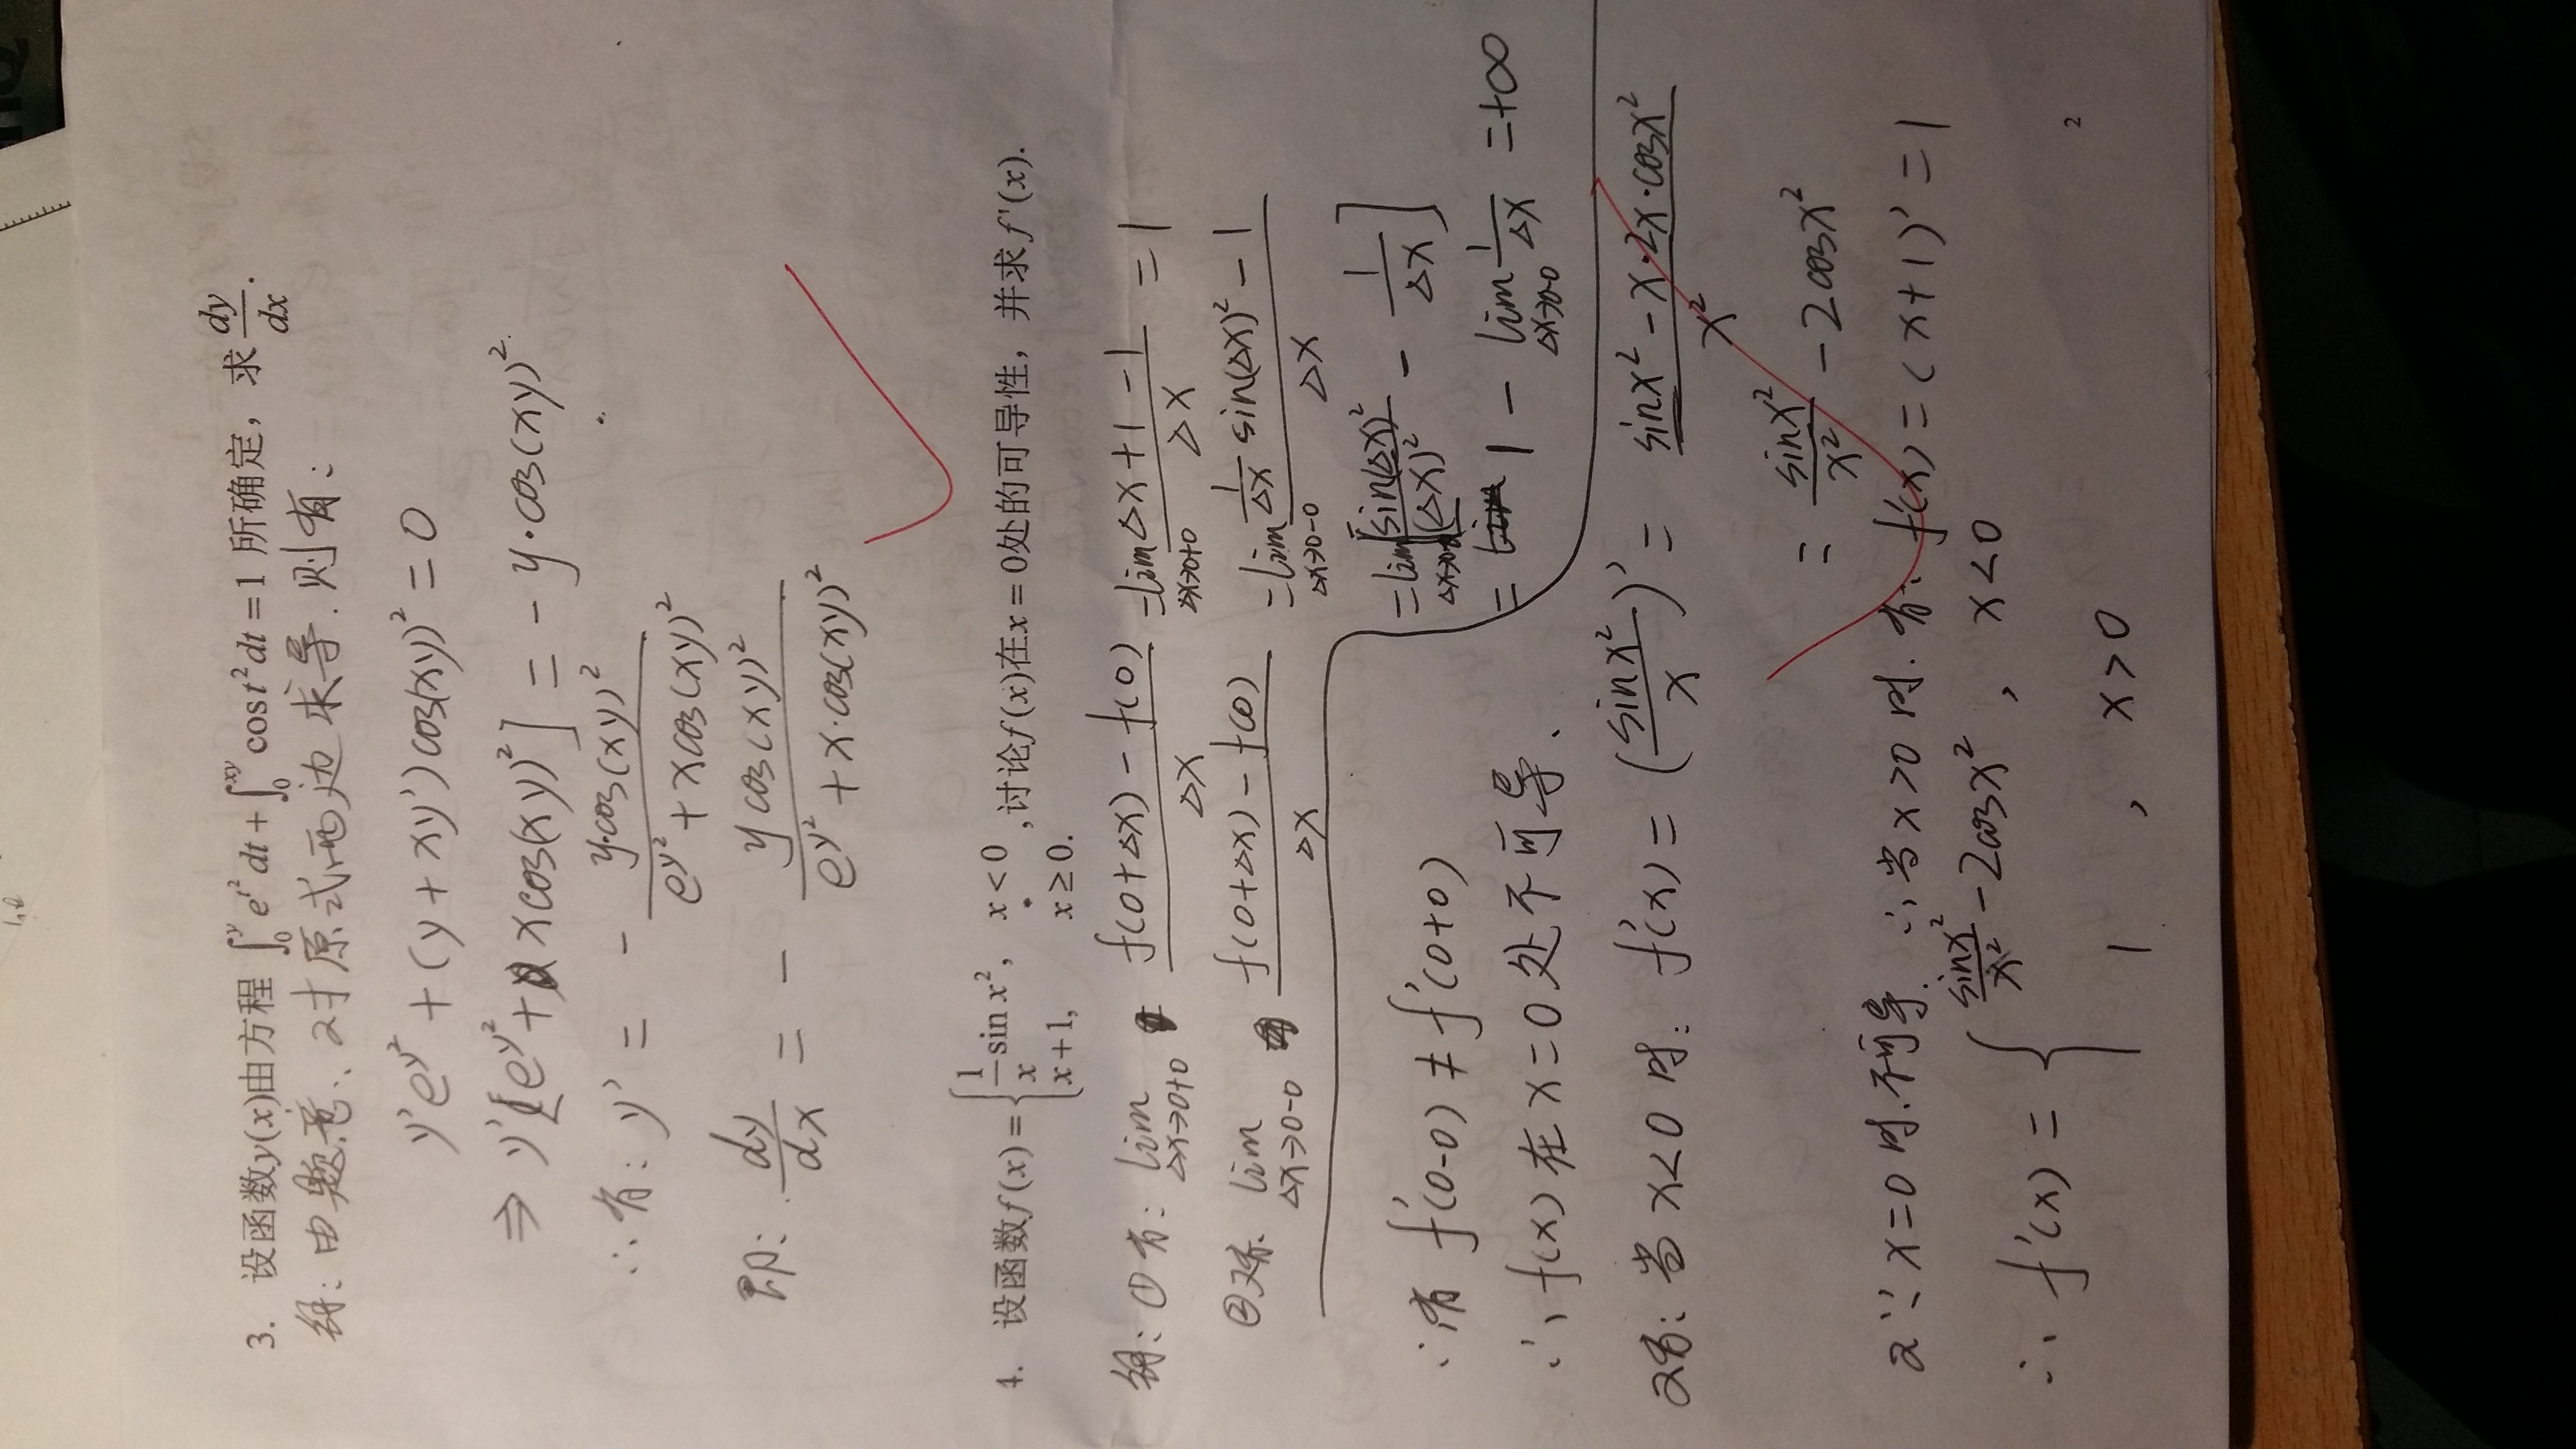 3. 设函数y(x)由方程 ∫₀^y e^{t²}dt + ∫₀^{xy} cos t²dt = 1 所确定，求 dy/dx.
解：由题意、对原式两边求导.则有：
y'e^{y²} + (y + xy')cos(xy)² = 0
⇒ y'[e^{y²} + xcos(xy)²] = - y·cos(xy)²
∴有：y' = - y·cos(xy)² / (e^{y²} + xcos(xy)²)
即：dy/dx = - ycos(xy)² / (e^{y²} + x·cos(xy)²)
4. 设函数f(x) = { (1/x)sin x², x < 0
x+1, x ≥ 0.
,讨论f(x)在x = 0处的可导性，并求f'(x).
解：①有：lim_{Δx→0+0} (f(0+Δx) - f(0))/Δx = lim_{Δx→0+0} (Δx+1-1)/Δx = 1
② lim_{Δx→0-0} (f(0+Δx) - f(0))/Δx = lim_{Δx→0-0} ((1/Δx)sin(Δx)² - 1)/Δx
= lim_{Δx→0-0} [sin(Δx)²/(Δx)² - 1/Δx]
= 1 - lim_{Δx→0-0} 1/Δx = +∞
∴有 f'(0-0) ≠ f'(0+0)
∴、f(x) 在 x=0 处不可导、
当 x<0 时: f'(x) = (sinx²/x)' = (sinx² - x·2x·cosx²)/x²
= sinx²/x² - 2cosx²
∵ x=0 时.不可导. ∴当x>0 时. 有: f'(x) = (x+1)' = 1
∴、f'(x) = { sinx²/x² - 2cosx² , x<0
1 , x>0
2